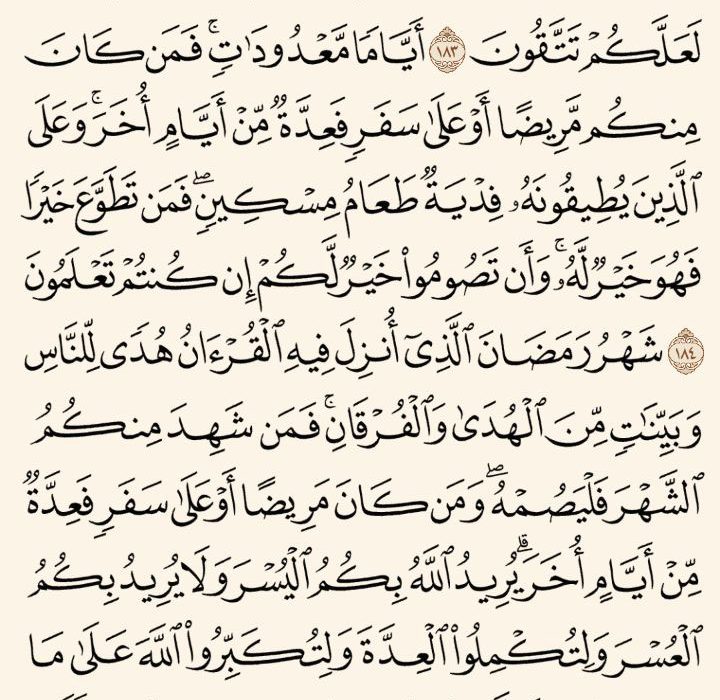 لَعَلَّكُمْ تَتَّقُونَ ١٨٣ أَيَّامًا مَّعْدُودَٰتٍۚ فَمَن كَانَ
مِنكُم مَّرِيضًا أَوْ عَلَىٰ سَفَرٍ فَعِدَّةٌ مِّنْ أَيَّامٍ أُخَرَۚ وَعَلَى
ٱلَّذِينَ يُطِيقُونَهُۥ فِدْيَةٌ طَعَامُ مِسْكِينٍۖ فَمَن تَطَوَّعَ خَيْرًا
فَهُوَ خَيْرٌ لَّهُۥۚ وَأَن تَصُومُوا۟ خَيْرٌ لَّكُمْ إِن كُنتُمْ تَعْلَمُونَ
١٨٤ شَهْرُ رَمَضَانَ ٱلَّذِىٓ أُنزِلَ فِيهِ ٱلْقُرْءَانُ هُدًى لِّلنَّاسِ
وَبَيِّنَٰتٍ مِّنَ ٱلْهُدَىٰ وَٱلْفُرْقَانِۚ فَمَن شَهِدَ مِنكُمُ
ٱلشَّهْرَ فَلْيَصُمْهُۖ وَمَن كَانَ مَرِيضًا أَوْ عَلَىٰ سَفَرٍ فَعِدَّةٌ
مِّنْ أَيَّامٍ أُخَرَۗ يُرِيدُ ٱللَّهُ بِكُمُ ٱلْيُسْرَ وَلَا يُرِيدُ بِكُمُ
ٱلْعُسْرَ وَلِتُكْمِلُوا۟ ٱلْعِدَّةَ وَلِتُكَبِّرُوا۟ ٱللَّهَ عَلَىٰ مَا